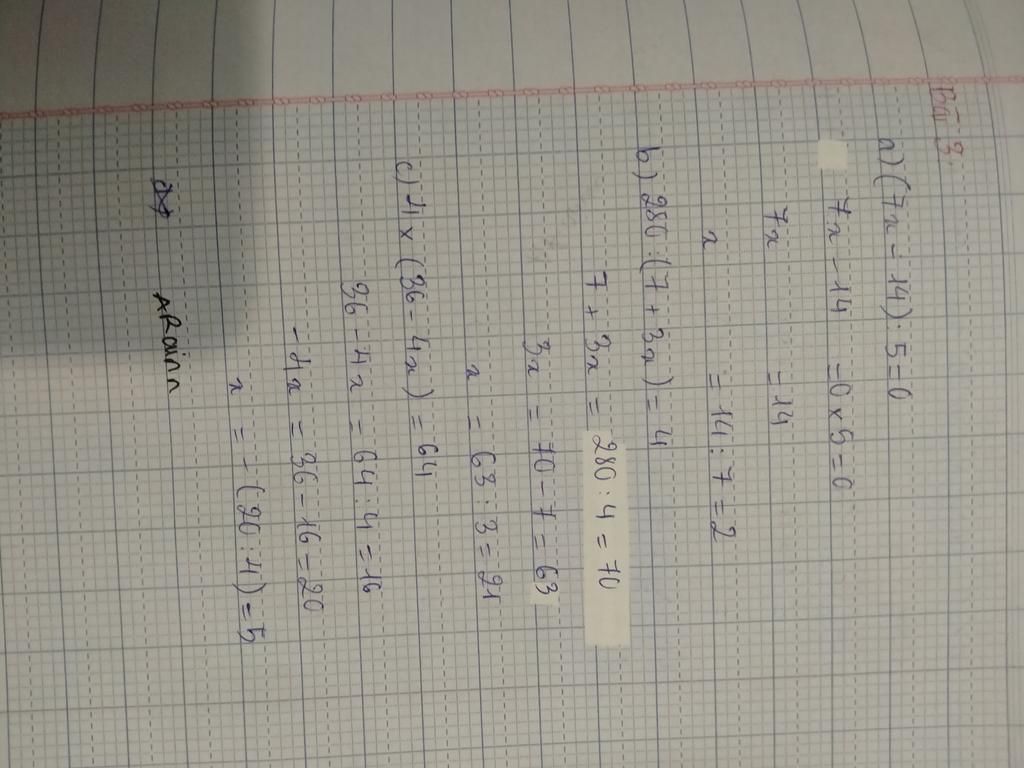 Bài 3
a) (7x - 14) : 5 = 0
7x - 14 = 0 x 5 = 0
7x = 14
x = 14 : 7 = 2
b) 280 (7 + 3x) = 4
7 + 3x = 280 : 4 = 70
3x = 70 - 7 = 63
x = 63 : 3 = 21
c) 4 x (36 - 4x) = 64
36 - 4x = 64 : 4 = 16
- 4x = 36 - 16 = 20
x = - (20 : 4) = 5
ARainn